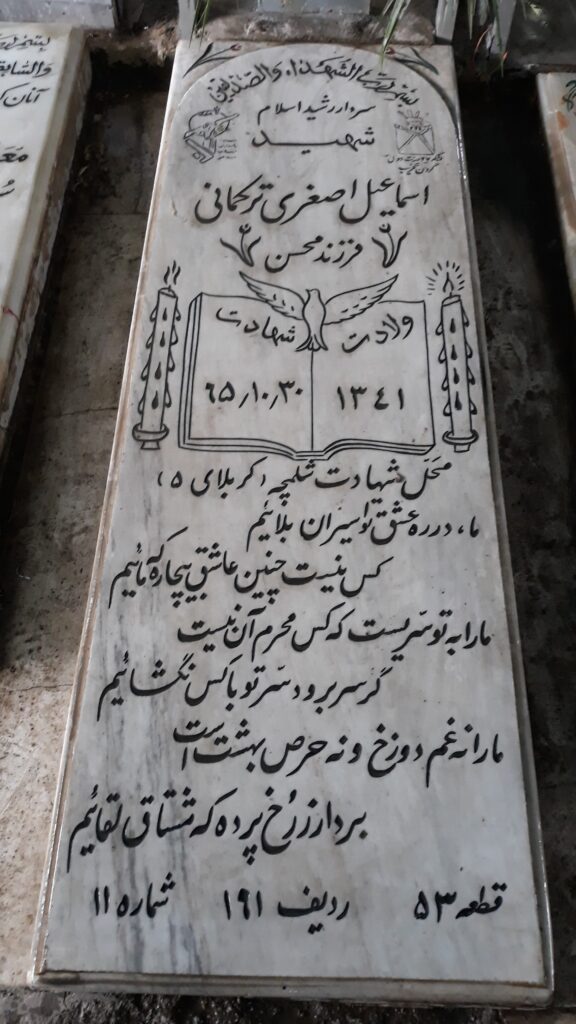 بسم رب الشهداء والصدیقین
سردار رشید اسلام
شهید
اسماعیل اصغری ترکمانی
فرزند محسن
ولادت شهادت
۱۳٤۱ ٦۵٫۱۰٫۳۰
محل شهادت شلمچه (کربلای ۵)
ما، در ره عشق تو اسیران بلائیم
کس نیست چنین عاشق بیچاره که مائیم
ما را به تو سریست که کس محرم آن نیست
گر سر برود سر تو با کس نگشائیم
ما را نه غم دوزخ و نه حرص بهشت است
بردار ز رُخ پرده که مشتاق لقائیم
قطعه ۵۳ ردیف ۱۹۱ شماره ۱۱